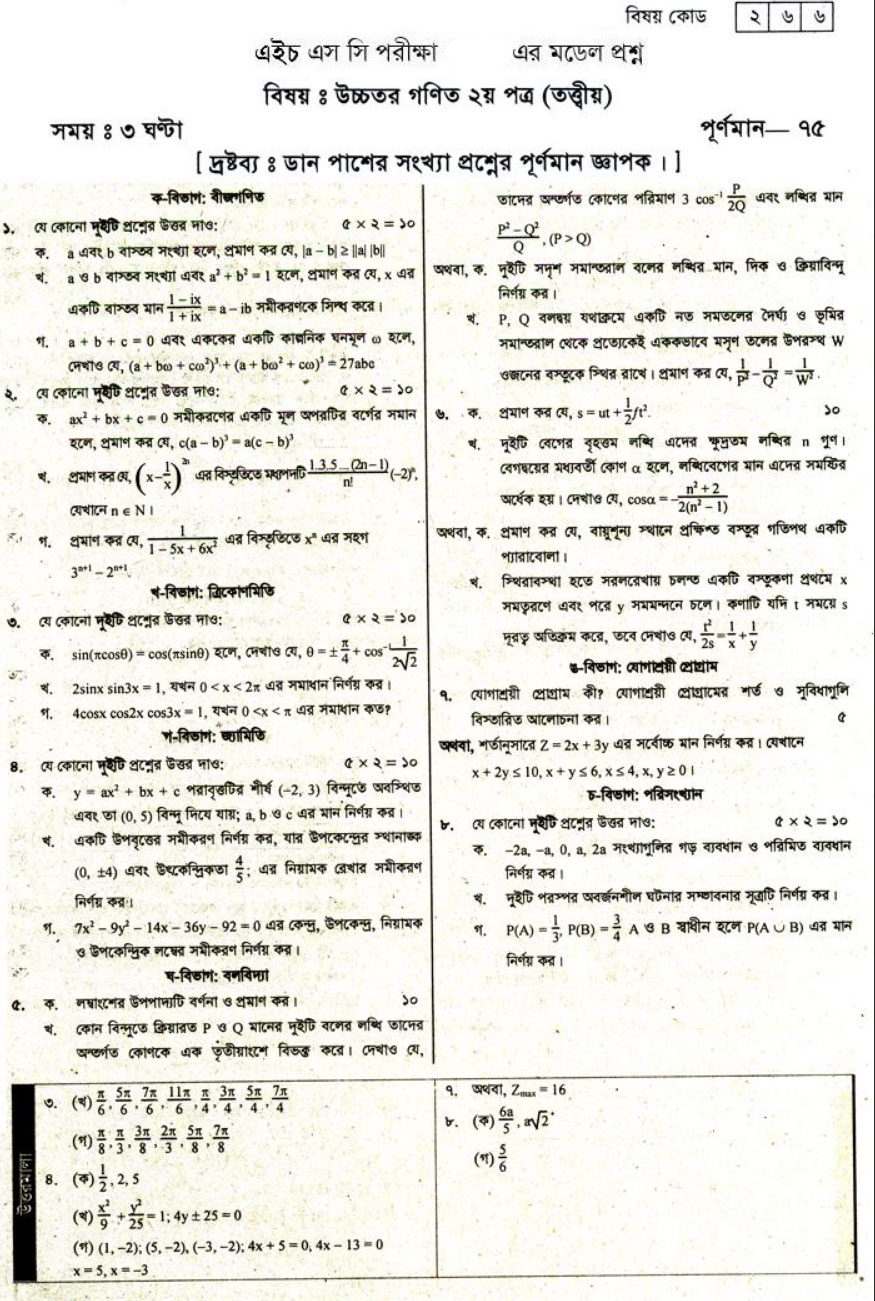 বিষয় কোড ২ ৬ ৬
এইচ এস সি পরীক্ষা এর মডেল প্রশ্ন
বিষয় ঃ উচ্চতর গণিত ২য় পত্র (তত্ত্বীয়)
সময় ঃ ৩ ঘণ্টা পূর্ণমান— ৭৫
[ দ্রষ্টব্য ঃ ডান পাশের সংখ্যা প্রশ্নের পূর্ণমান জ্ঞাপক । ]
ক-বিভাগ: বীজগণিত
১. যে কোনো দুইটি প্রশ্নের উত্তর দাও: ৫ × ২ = ১০
ক. a এবং b বাস্তব সংখ্যা হলে, প্রমাণ কর যে, |a – b| ≥ ||a| |b||
খ. a ও b বাস্তব সংখ্যা এবং a² + b² = 1 হলে, প্রমাণ কর যে, x এর
একটি বাস্তব মান (1 – ix)/(1 + ix) = a – ib সমীকরণকে সিদ্ধ করে।
গ. a + b + c = 0 এবং এককের একটি কাল্পনিক ঘনমূল ω হলে,
দেখাও যে, (a + bω + cω²)³ + (a + bω² + cω)³ = 27abc
২. যে কোনো দুইটি প্রশ্নের উত্তর দাও: ৫ × ২ = ১০
ক. ax² + bx + c = 0 সমীকরণের একটি মূল অপরটির বর্গের সমান
হলে, প্রমাণ কর যে, c(a – b)³ = a(c – b)³
খ. প্রমাণ কর যে, (x – 1/x)²ⁿ এর বিস্তৃতিতে মধ্যপদটি 1.3.5 ... (2n – 1)/n! (–2)ⁿ,
যেখানে n ∈ N ।
গ. প্রমাণ কর যে, 1/(1 – 5x + 6x²) এর বিস্তৃতিতে xⁿ এর সহগ
3ⁿ⁺¹ – 2ⁿ⁺¹.
খ-বিভাগ: ত্রিকোণমিতি
৩. যে কোনো দুইটি প্রশ্নের উত্তর দাও: ৫ × ২ = ১০
ক. sin(πcosθ) = cos(πsinθ) হলে, দেখাও যে, θ = ± π/4 + cos⁻¹ 1/(2√2)
খ. 2sinx sin3x = 1, যখন 0 < x < 2π এর সমাধান নির্ণয় কর।
গ. 4cosx cos2x cos3x = 1, যখন 0 <x < π এর সমাধান কত?
গ-বিভাগ: জ্যামিতি
৪. যে কোনো দুইটি প্রশ্নের উত্তর দাও: ৫ × ২ = ১০
ক. y = ax² + bx + c পরাবৃত্তটির শীর্ষ (–2, 3) বিন্দুতে অবস্থিত
এবং তা (0, 5) বিন্দু দিয়ে যায়; a, b ও c এর মান নির্ণয় কর।
খ. একটি উপবৃত্তের সমীকরণ নির্ণয় কর, যার উপকেন্দ্রের স্থানাঙ্ক
(0, ±4) এবং উৎকেন্দ্রিকতা 4/5; এর নিয়ামক রেখার সমীকরণ
নির্ণয় কর।
গ. 7x² – 9y² – 14x – 36y – 92 = 0 এর কেন্দ্র, উপকেন্দ্র, নিয়ামক
ও উপকেন্দ্রিক লম্বের সমীকরণ নির্ণয় কর।
ঘ-বিভাগ: বলবিদ্যা
৫. ক. লম্বাংশের উপপাদ্যটি বর্ণনা ও প্রমাণ কর। ১০
খ. কোন বিন্দুতে ক্রিয়ারত P ও Q মানের দুইটি বলের লব্ধি তাদের
অন্তর্গত কোণকে এক তৃতীয়াংশে বিভক্ত করে। দেখাও যে,
তাদের অন্তর্গত কোণের পরিমাণ 3 cos⁻¹ P/2Q এবং লব্ধির মান
(P² – Q²)/Q, (P > Q)
অথবা, ক. দুইটি সদৃশ সমান্তরাল বলের লব্ধির মান, দিক ও ক্রিয়াবিন্দু
নির্ণয় কর।
খ. P, Q বলদ্বয় যথাক্রমে একটি নত সমতলের দৈর্ঘ্য ও ভূমির
সমান্তরাল থেকে প্রত্যেকেই এককভাবে মসৃণ তলের উপরস্থ W
ওজনের বস্তুকে স্থির রাখে। প্রমাণ কর যে, 1/P² – 1/Q² = 1/W² .
৬. ক. প্রমাণ কর যে, s = ut + 1/2 ft². ১০
খ. দুইটি বেগের বৃহত্তম লব্ধি এদের ক্ষুদ্রতম লব্ধির n গুণ।
বেগদ্বয়ের মধ্যবর্তী কোণ α হলে, লব্ধিবেগের মান এদের সমষ্টির
অর্ধেক হয়। দেখাও যে, cosα = – (n² + 2)/(2(n² – 1))
অথবা, ক. প্রমাণ কর যে, বায়ুশূন্য স্থানে প্রক্ষিপ্ত বস্তুর গতিপথ একটি
প্যারাবোলা।
খ. স্থিরাবস্থা হতে সরলরেখায় চলন্ত একটি বস্তুকণা প্রথমে x
সমত্বরণে এবং পরে y সমমন্দনে চলে। কণাটি যদি t সময়ে s
দূরত্ব অতিক্রম করে, তবে দেখাও যে, t²/2s = 1/x + 1/y
ঙ-বিভাগ: যোগাশ্রয়ী প্রোগ্রাম
৭. যোগাশ্রয়ী প্রোগ্রাম কী? যোগাশ্রয়ী প্রোগ্রামের শর্ত ও সুবিধাগুলি
বিস্তারিত আলোচনা কর। ৫
অথবা, শর্তানুসারে Z = 2x + 3y এর সর্বোচ্চ মান নির্ণয় কর। যেখানে
x + 2y ≤ 10, x + y ≤ 6, x ≤ 4, x, y ≥ 0 ।
চ-বিভাগ: পরিসংখ্যান
৮. যে কোনো দুইটি প্রশ্নের উত্তর দাও: ৫ × ২ = ১০
ক. –2a, –a, 0, a, 2a সংখ্যাগুলির গড় ব্যবধান ও পরিমিত ব্যবধান
নির্ণয় কর।
খ. দুইটি পরস্পর অবর্জনশীল ঘটনার সম্ভাবনার সূত্রটি নির্ণয় কর।
গ. P(A) = 1/3, P(B) = 3/4 A ও B স্বাধীন হলে P(A ∪ B) এর মান
নির্ণয় কর।
উত্তরমালা
৩. (খ) π/6, 5π/6, 7π/6, 11π/6, π/4, 3π/4, 5π/4, 7π/4
(গ) π/8, π/3, 3π/8, 2π/3, 5π/8, 7π/8
৪. (ক) 1/2, 2, 5
(খ) x²/9 + y²/25 = 1; 4y ± 25 = 0
(গ) (1, –2); (5, –2), (–3, –2); 4x + 5 = 0, 4x – 13 = 0
x = 5, x = –3
৭. অথবা, Zmax = 16
৮. (ক) 6a/5, a√2
(গ) 5/6